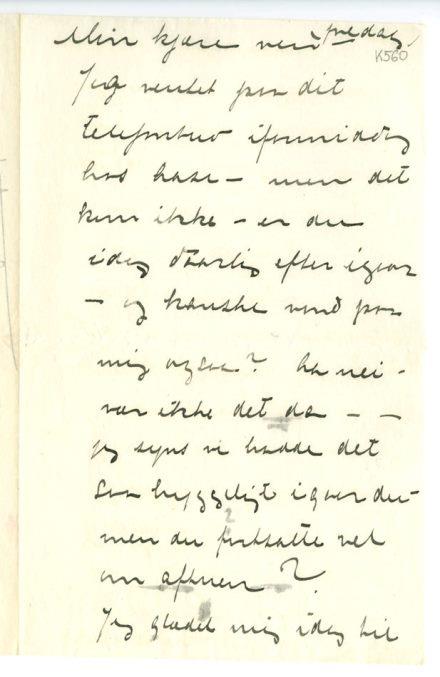 Min kjære ven fredag
K560
Jeg ventet paa dit
telefonbud iformiddag
hos hase – men det
kom ikke – er du
idag daarlig efter igaar
– og kanske vond paa
mig ogsaa? Aa nei –
vær ikke det da – –
jeg syns vi hadde det
saa hyggeligt igaar du –
men du fortsatte vel
om aftnen?
Jeg glædet mig idag til